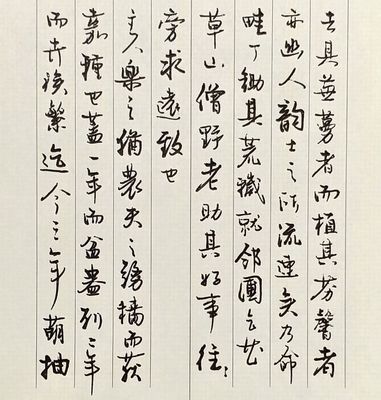 去其蕪蔓者而植其芬馨者
亦幽人韵士之所流連矣乃命
畦丁鋤其荒穢就鄰圃乞花
草山僧野老助其好事往々
旁求遠致也
主人樂之猶農夫之務穡而获
嘉種也盖一年而盆盎列二年
而卉族繁迄今三年萌抽